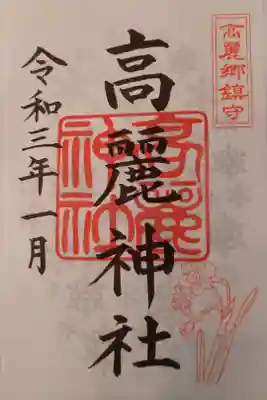 高麗郷鎮守
高麗神社
高麗神社
令和三年一月